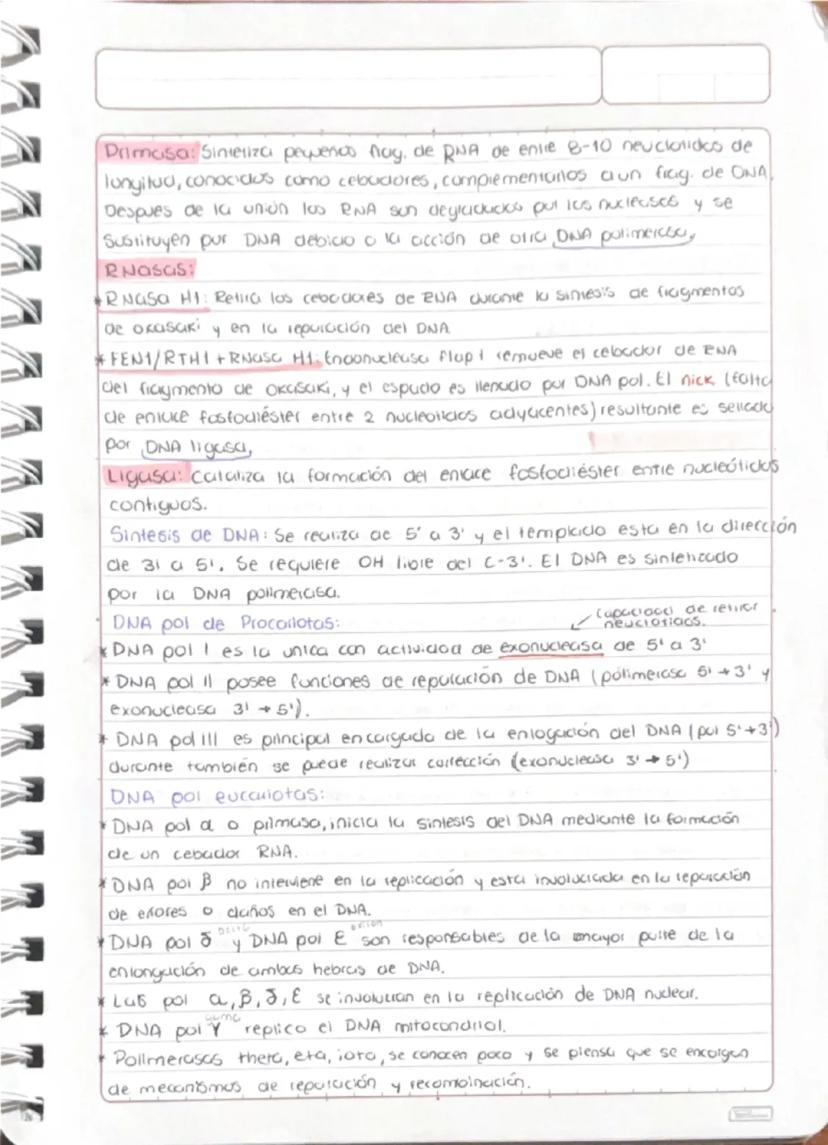 Primasa: Sintetiza pequeños frag. de RNA de entre 8-10 neucleotidos de
longitud, conocidos como cebadores, complementarios a un frag. de DNA.
Despues de la unión los RNA son degradados por las nucleasas y se
sustituyen por DNA debido a la acción de otra DNA polimerasa,
RNasas:
* RNasa H1: Retira los cebadores de RNA durante la sintesis de fragmentos
de okasaki y en la reparación del DNA
* FEN1/RTH1 + RNasa H1: Endonucleasa flap 1 remueve el cebador de RNA
del fragmento de okasaki, y el espacio es llenado por DNA pol. El nick (falta
de enlace fosfodiéster entre 2 nucleotidos adyacentes) resultante es sellado
por DNA ligasa,
Ligasa: Cataliza la formación del enlace fosfodiéster entre nucleótidos
contiguos.
Sintesis de DNA: Se realiza de 5' a 3' y el templado esta en la dirección
de 3' a 5'. Se requiere OH libre del C-3'. El DNA es sintetizado
por la DNA polimerasa.
DNA pol de Procariotas:
capacidad de retirar
neucleotidos.
* DNA pol I es la unica con actividad de exonucleasa de 5' a 3'
* DNA pol II posee funciones de reparación de DNA (polimerasa 5' → 3' y
exonucleasa 3' → 5').
* DNA pol III es principal encargada de la enlogación del DNA (pol 5' → 3')
durante también se puede realizar corrección (exonucleasa 3' → 5')
DNA pol eucariotas:
* DNA pol α o primasa, inicia la sintesis del DNA mediante la formación
de un cebador RNA.
* DNA pol β no interviene en la replicación y esta involucrada en la reparación
de errores o daños en el DNA.
delta
* DNA pol δ y DNA pol ε son responsables de la mayor parte de la
enlongación de ambas hebras de DNA.
* Las pol α, β, δ, ε se involucran en la replicación de DNA nuclear.
gama
* DNA pol γ replica el DNA mitocondrial.
* Polimerasas theta, eta, iota, se conocen poco y se piensa que se encargan
de mecanismos de reparación y recombinación.